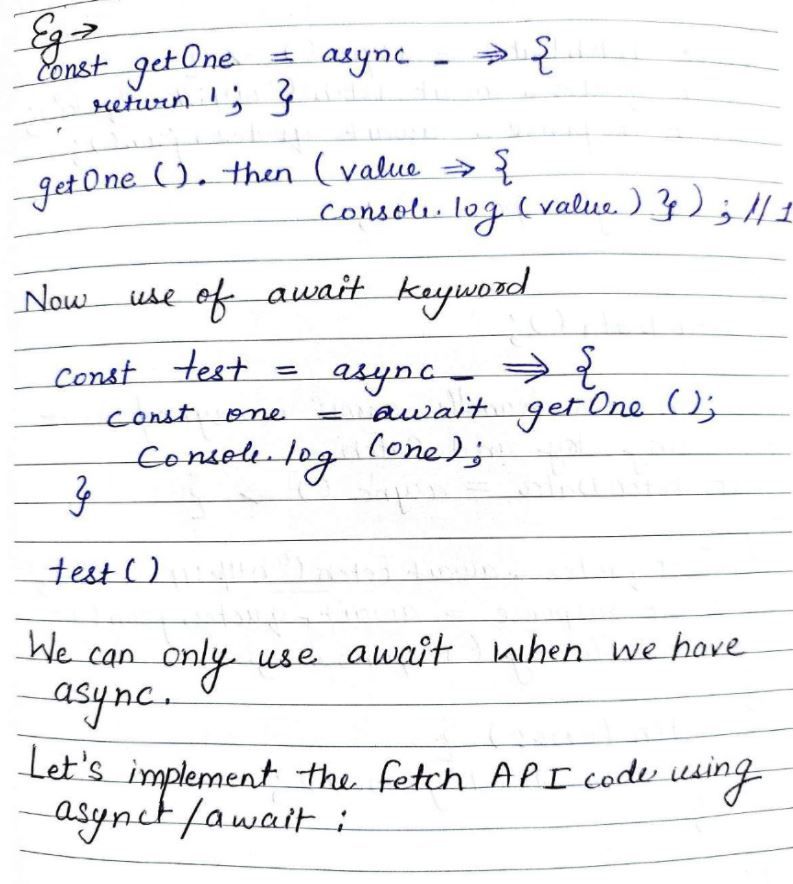 Eg →
const getOne = async _ => {
return 1; }
getOne (). then ( value => {
console. log ( value ) } ) ; // 1
Now use of await keyword
const test = async _ => {
const one = await getOne ();
Console. log (one);
}
test ()
We can only use await when we have
async.
Let's implement the fetch API code using
asynct / await :